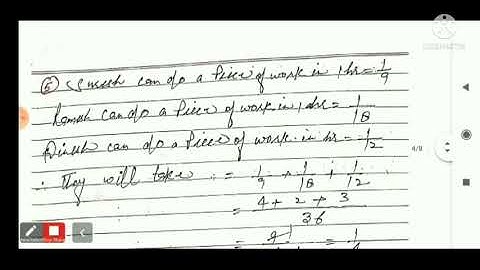 ⑤ Suresh can do a Piece of work in 1 hr = 1/9
Ramesh can do a Piece of work in 1 hr = 1/18
Dinesh can do a Piece of work in hr = 1/12
∴ They will take = 1/9 + 1/18 + 1/12
= 4 + 2 + 3 / 36
= 9 1 = 1/4
4/9